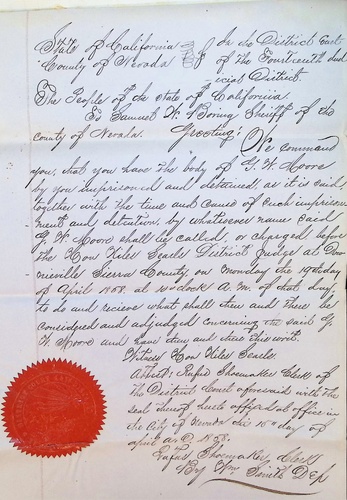 State of California In the District Court
County of Nevada of the Fourteenth Jud
icial District.
The People of the state of California.
To Samuel W. Boring Sheriff of the
county of Nevada. Greeting! We command
you, that you have the body of G. W. Moore
by you imprisoned and detained, as it is said,
together with the time and cause of such imprison
ment and detention, by whatsoever name said
G. W. Moore shall be called, or charged, before
the Hon Niles Searls District Judge at Dow
nieville Sierra County on Monday the 19th day
of April 1858. at 10 o'clock A. M. of that day
to do and recieve what shall then and there be
considered and adjudged concerning the said G.
W. Moore and have then and there this writ.
Witness Hon Niles Searls.
Attest; Rufus Shoemaker Clerk of
the District Court aforesaid with the
seal thereof hereto affixed at office in
the City of Nevada this 16th day of
April A. D. 1858.
Rufus Shoemaker, Clerk
By Wm Smith Dep